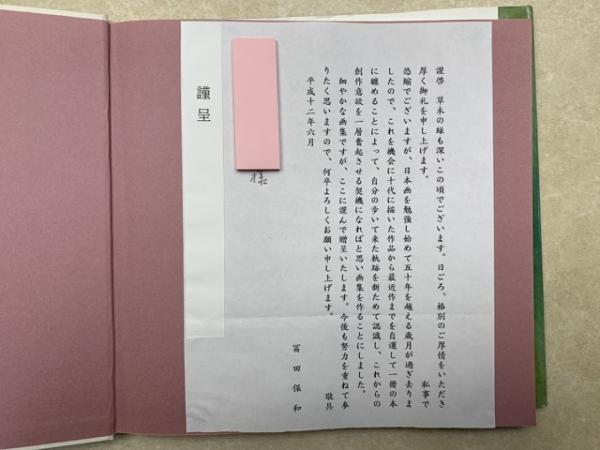 謹啓　草木の緑も深いこの頃でございます。日ごろ、格別のご厚情をいただき
厚く御礼を申し上げます。
私事で
恐縮でございますが、日本画を勉強し始めて五十年を越える歳月が過ぎ去りま
したので、これを機会に十代に描いた作品から最近作までを自選して一冊の本
に纏めることによって、自分の歩いて来た軌跡を新ためて認識し、これからの
創作意欲を一層奮起させる契機になればと思い画集を作ることにしました。
細やかな画集ですが、ここに謹んで贈呈いたします。今後も努力を重ねて参
りたく思いますので、何卒よろしくお願い申し上げます。
敬具
平成十二年六月
冨田保和
様
謹呈